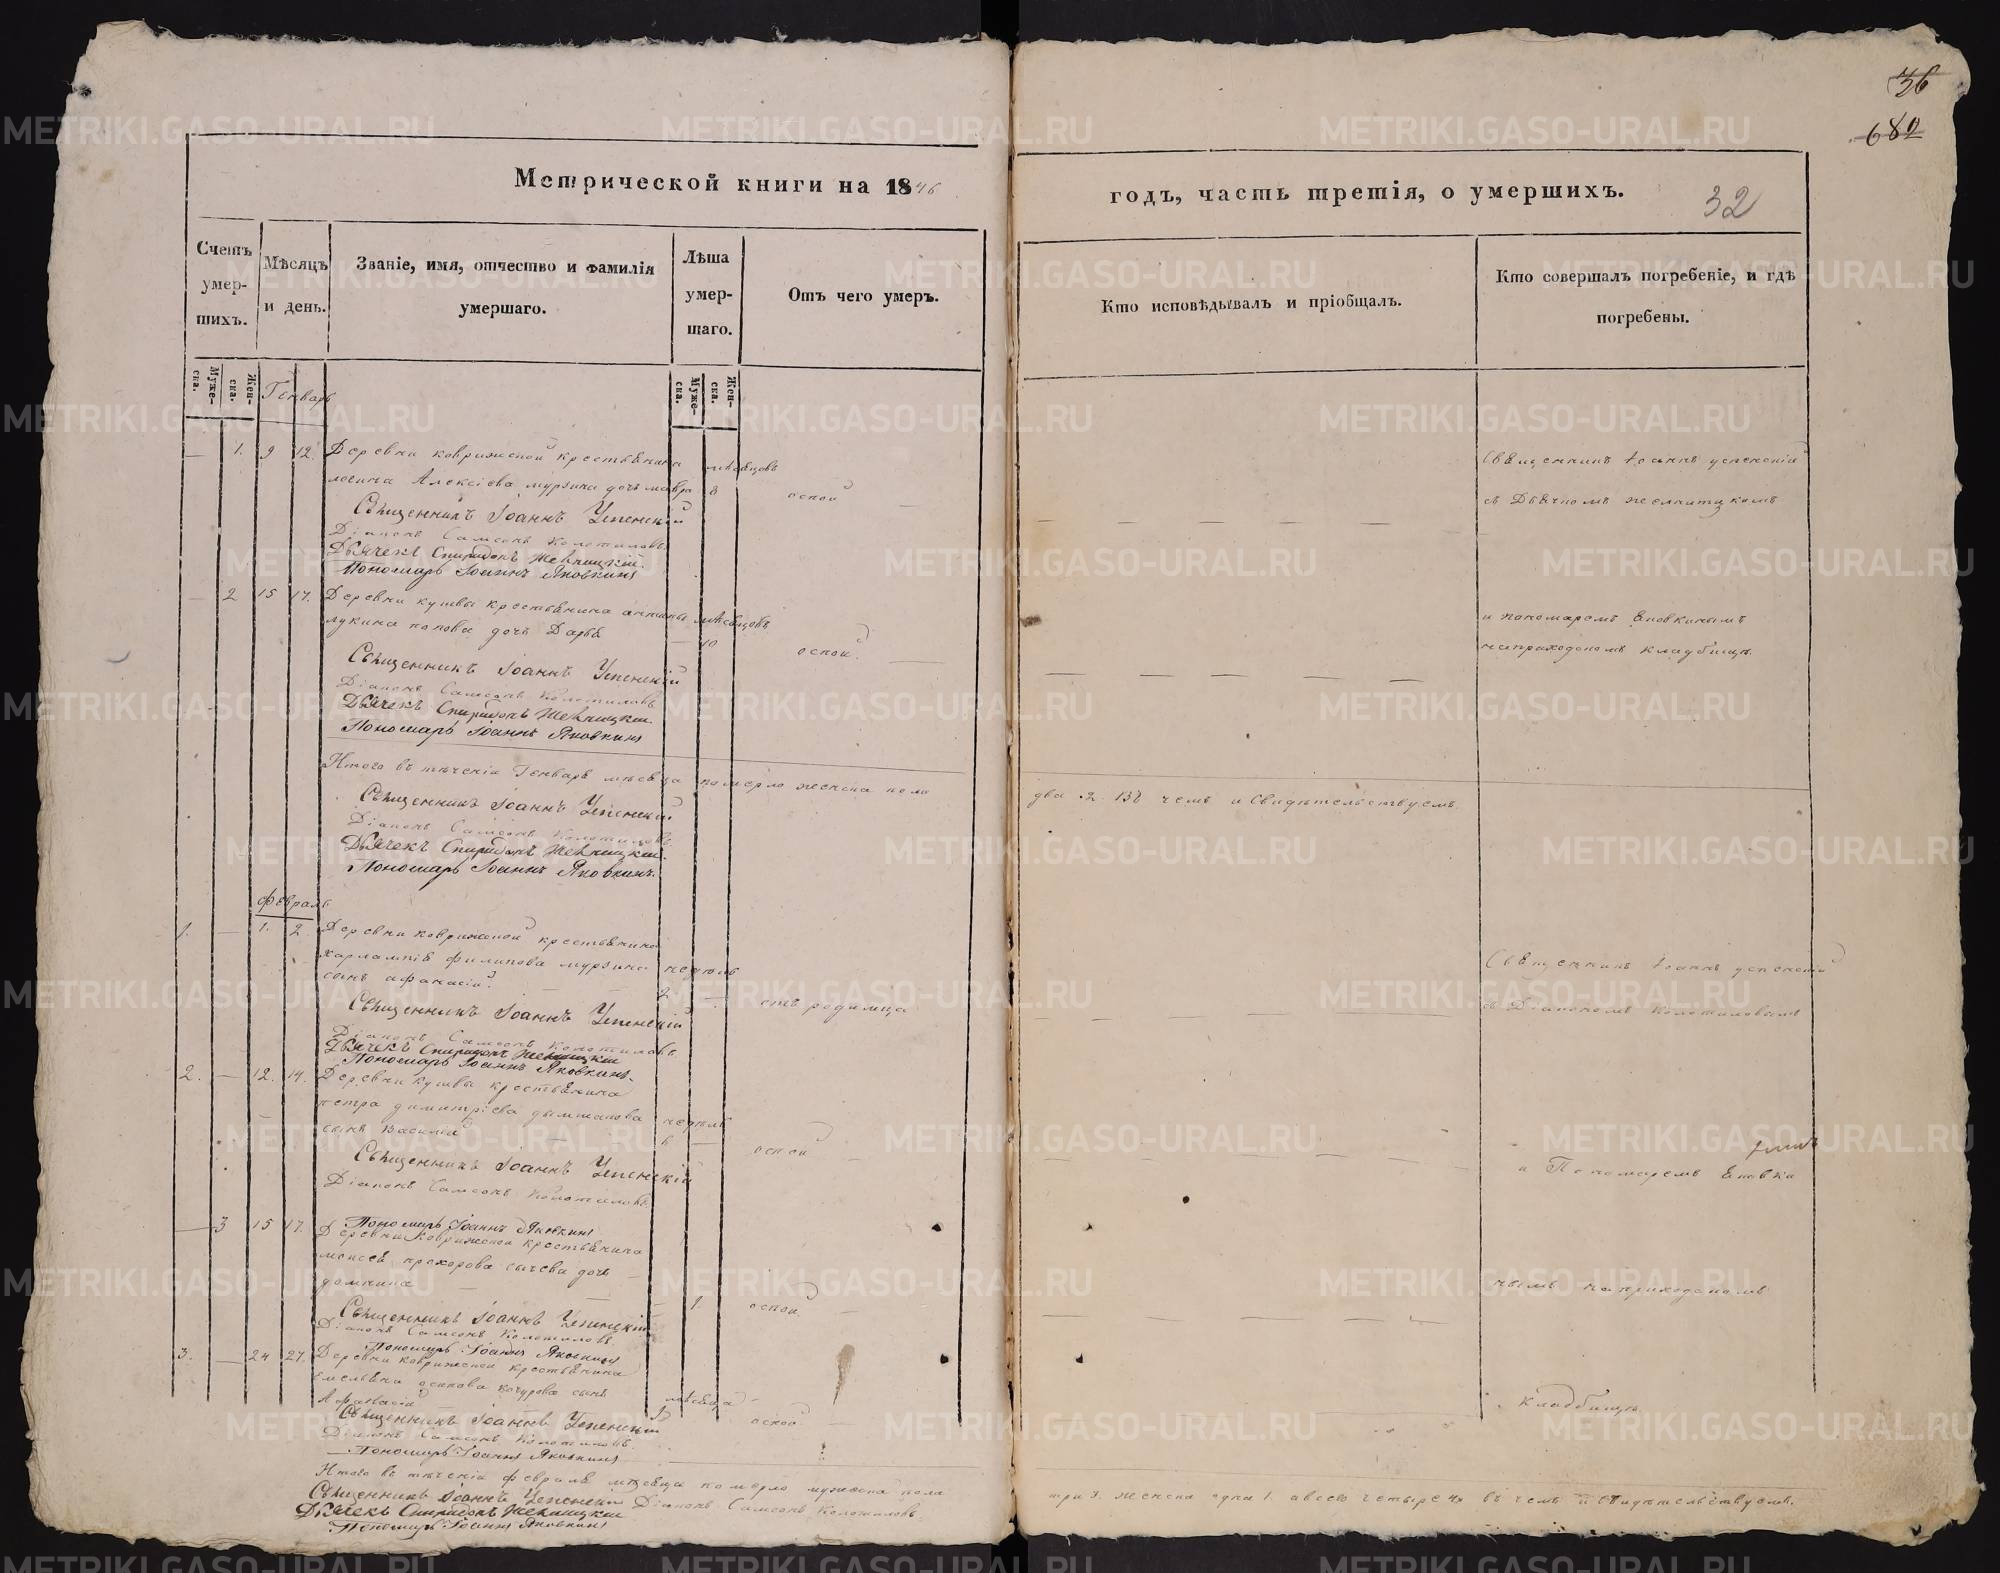 36
682
Метрической книги на 1846
годъ, часть третія, о умершихъ.
32
Счетъ умер-шихъ.
Мѣсяцъ и день.
Званіе, имя, отчество и фамилія умершаго.
Лѣта умер-шаго.
Отъ чего умеръ.
Кто исповѣдывалъ и пріобщалъ.
Кто совершалъ погребеніе, и гдѣ погребены.
Муже-ска.
Жен-ска.
Муже-ска.
Жен-ска.
Генварь
1. 9 12. Деревни коврижской крестьянина мѣсяцовъ
логина Алексіева мурзина дочь мавра 8 оспой
Священникъ Іоаннъ Успенскій
Діаконъ Самсонъ Колотиловъ
Дьячекъ Спиридонъ
Пономарь Іоаннъ Яковкинъ
Священникъ Іоаннъ успенскій
съ Дьячкомъ
2 15 17. Деревни кушвы крестьянина антипы мѣсяцовъ
лукина попова дочь Дарья 10 оспой
Священникъ Іоаннъ Успенскій
Діаконъ Самсонъ Колотиловъ
Дьячекъ Спиридонъ
Пономарь Іоаннъ Яковкинъ
и пономаремъ Яковкинымъ
наприходскомъ кладбищѣ.
Итого въ теченіи Генваря мѣсяца померло женска пола
два 2. въ чемъ и Свидѣтельствуемъ.
Священникъ Іоаннъ Успенскій
Діаконъ Самсонъ Колотиловъ
Дьячекъ Спиридонъ
Пономарь Іоаннъ Яковкинъ.
Февраль
1. 1. 2 Деревни коврижской крестьянина
харлампія филипова мурзина недель
сынъ афанасій 2 отъ родимца
Священникъ Іоаннъ Успенскій
Діаконъ Самсонъ Колотиловъ
Дьячекъ Спиридонъ
Пономарь Іоаннъ Яковкинъ.
Священникъ Іоаннъ успенскій
съ Діакономъ Колотиловымъ
2. 12. 14. Деревни кушвы крестьянина
петра димитріева недель
сынъ василій 6 оспой
Священникъ Іоаннъ Успенскій
Діаконъ Самсонъ Колотиловъ
Пономарь Іоаннъ Яковкинъ
и Пономаремъ
3 15 17. Деревни Коврижской крестьянина
моисея прохорова сычева дочь
домнина 1. оспой
Священникъ Іоаннъ Успенскій
Діаконъ Самсонъ Колотиловъ
Пономарь Іоаннъ Яковкинъ
наприходскомъ
3. 24 27. Деревни коврижской крестьянина
емельяна осипова сынъ
Афанасій мѣсяца оспой
Священникъ Іоаннъ Успенскій
Діаконъ Самсонъ Колотиловъ
Пономарь Іоаннъ Яковкинъ
кладбищѣ
Итого въ теченіи февраля мѣсяца померло мужеска пола
три 3. женска одна 1. а всего четыре 4 въ чемъ и свидѣтельствуемъ.
Священникъ Іоаннъ Успенскій Діаконъ Самсонъ Колотиловъ
Дьячекъ Спиридонъ
Пономарь Іоаннъ Яковкинъ
METRIKI.GASO-URAL.RU